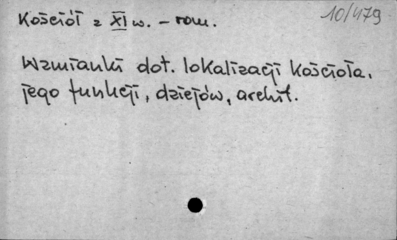 10/479
Kościół z XI w. – rom.
Wzmianki dot. lokalizacji kościoła,
jego funkcji, dziejów, archit.